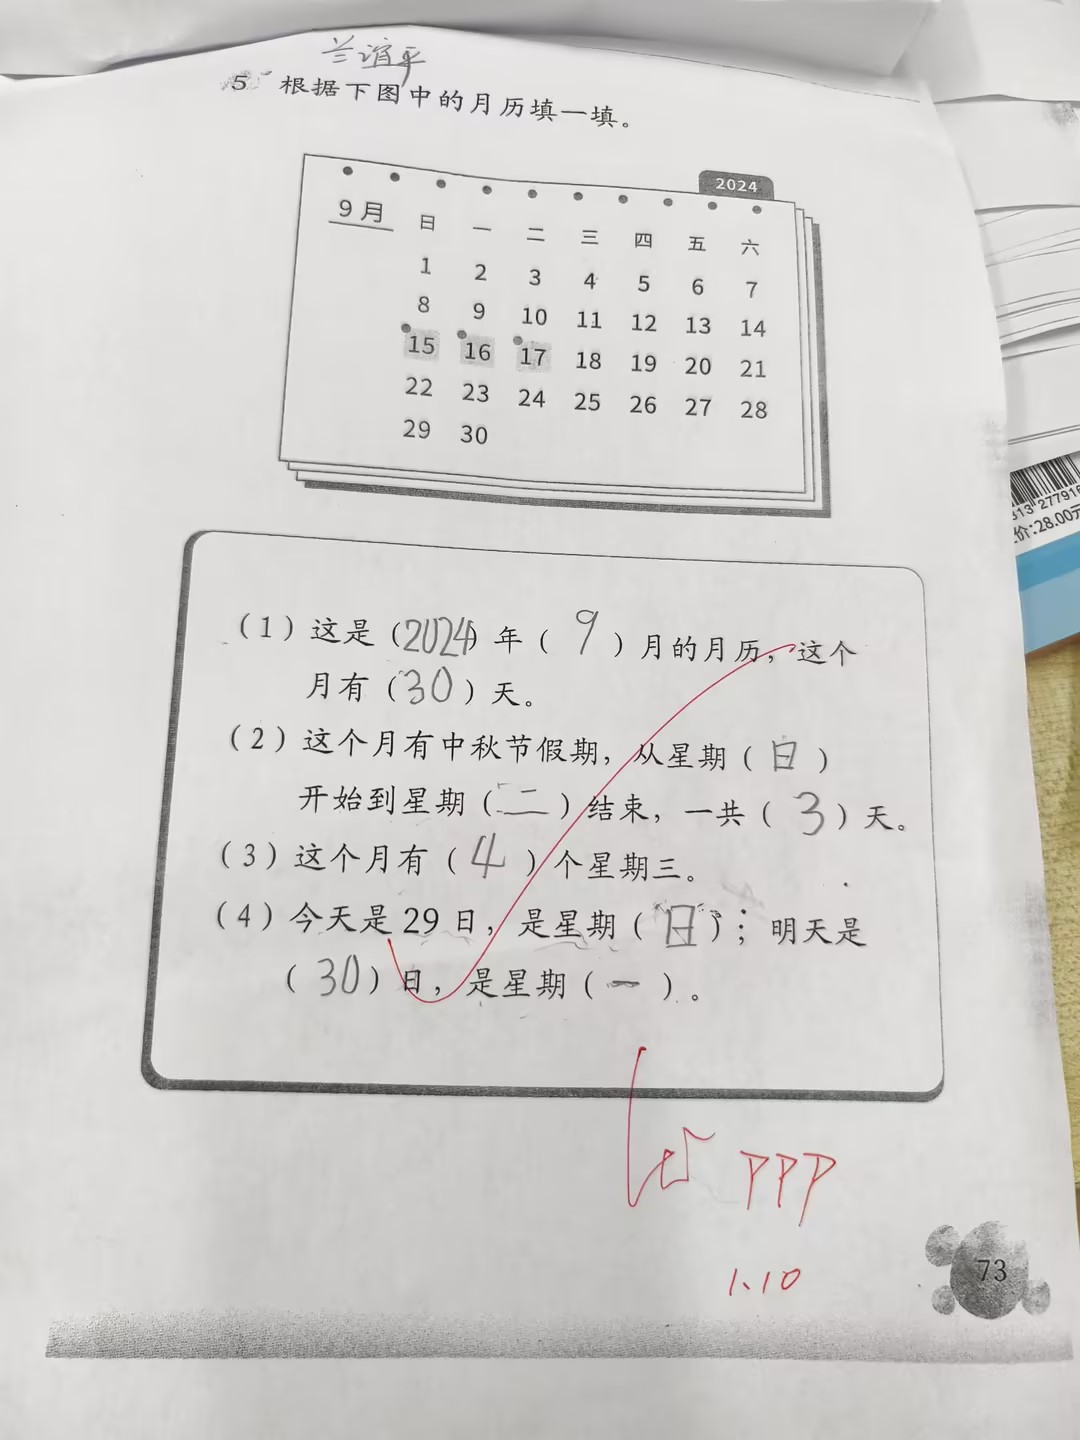 5 根据下图中的月历填一填。
2024
9月
日 一 二 三 四 五 六
1 2 3 4 5 6 7
8 9 10 11 12 13 14
15 16 17 18 19 20 21
22 23 24 25 26 27 28
29 30
(1)这是(2024)年(9)月的月历,这个
月有(30)天。
(2)这个月有中秋节假期,从星期(日)
开始到星期(二)结束,一共(3)天。
(3)这个月有(4)个星期三。
(4)今天是29日,是星期(日);明天是
(30)日,是星期(一)。
PPP
1.10
73
277916
价:28.00元